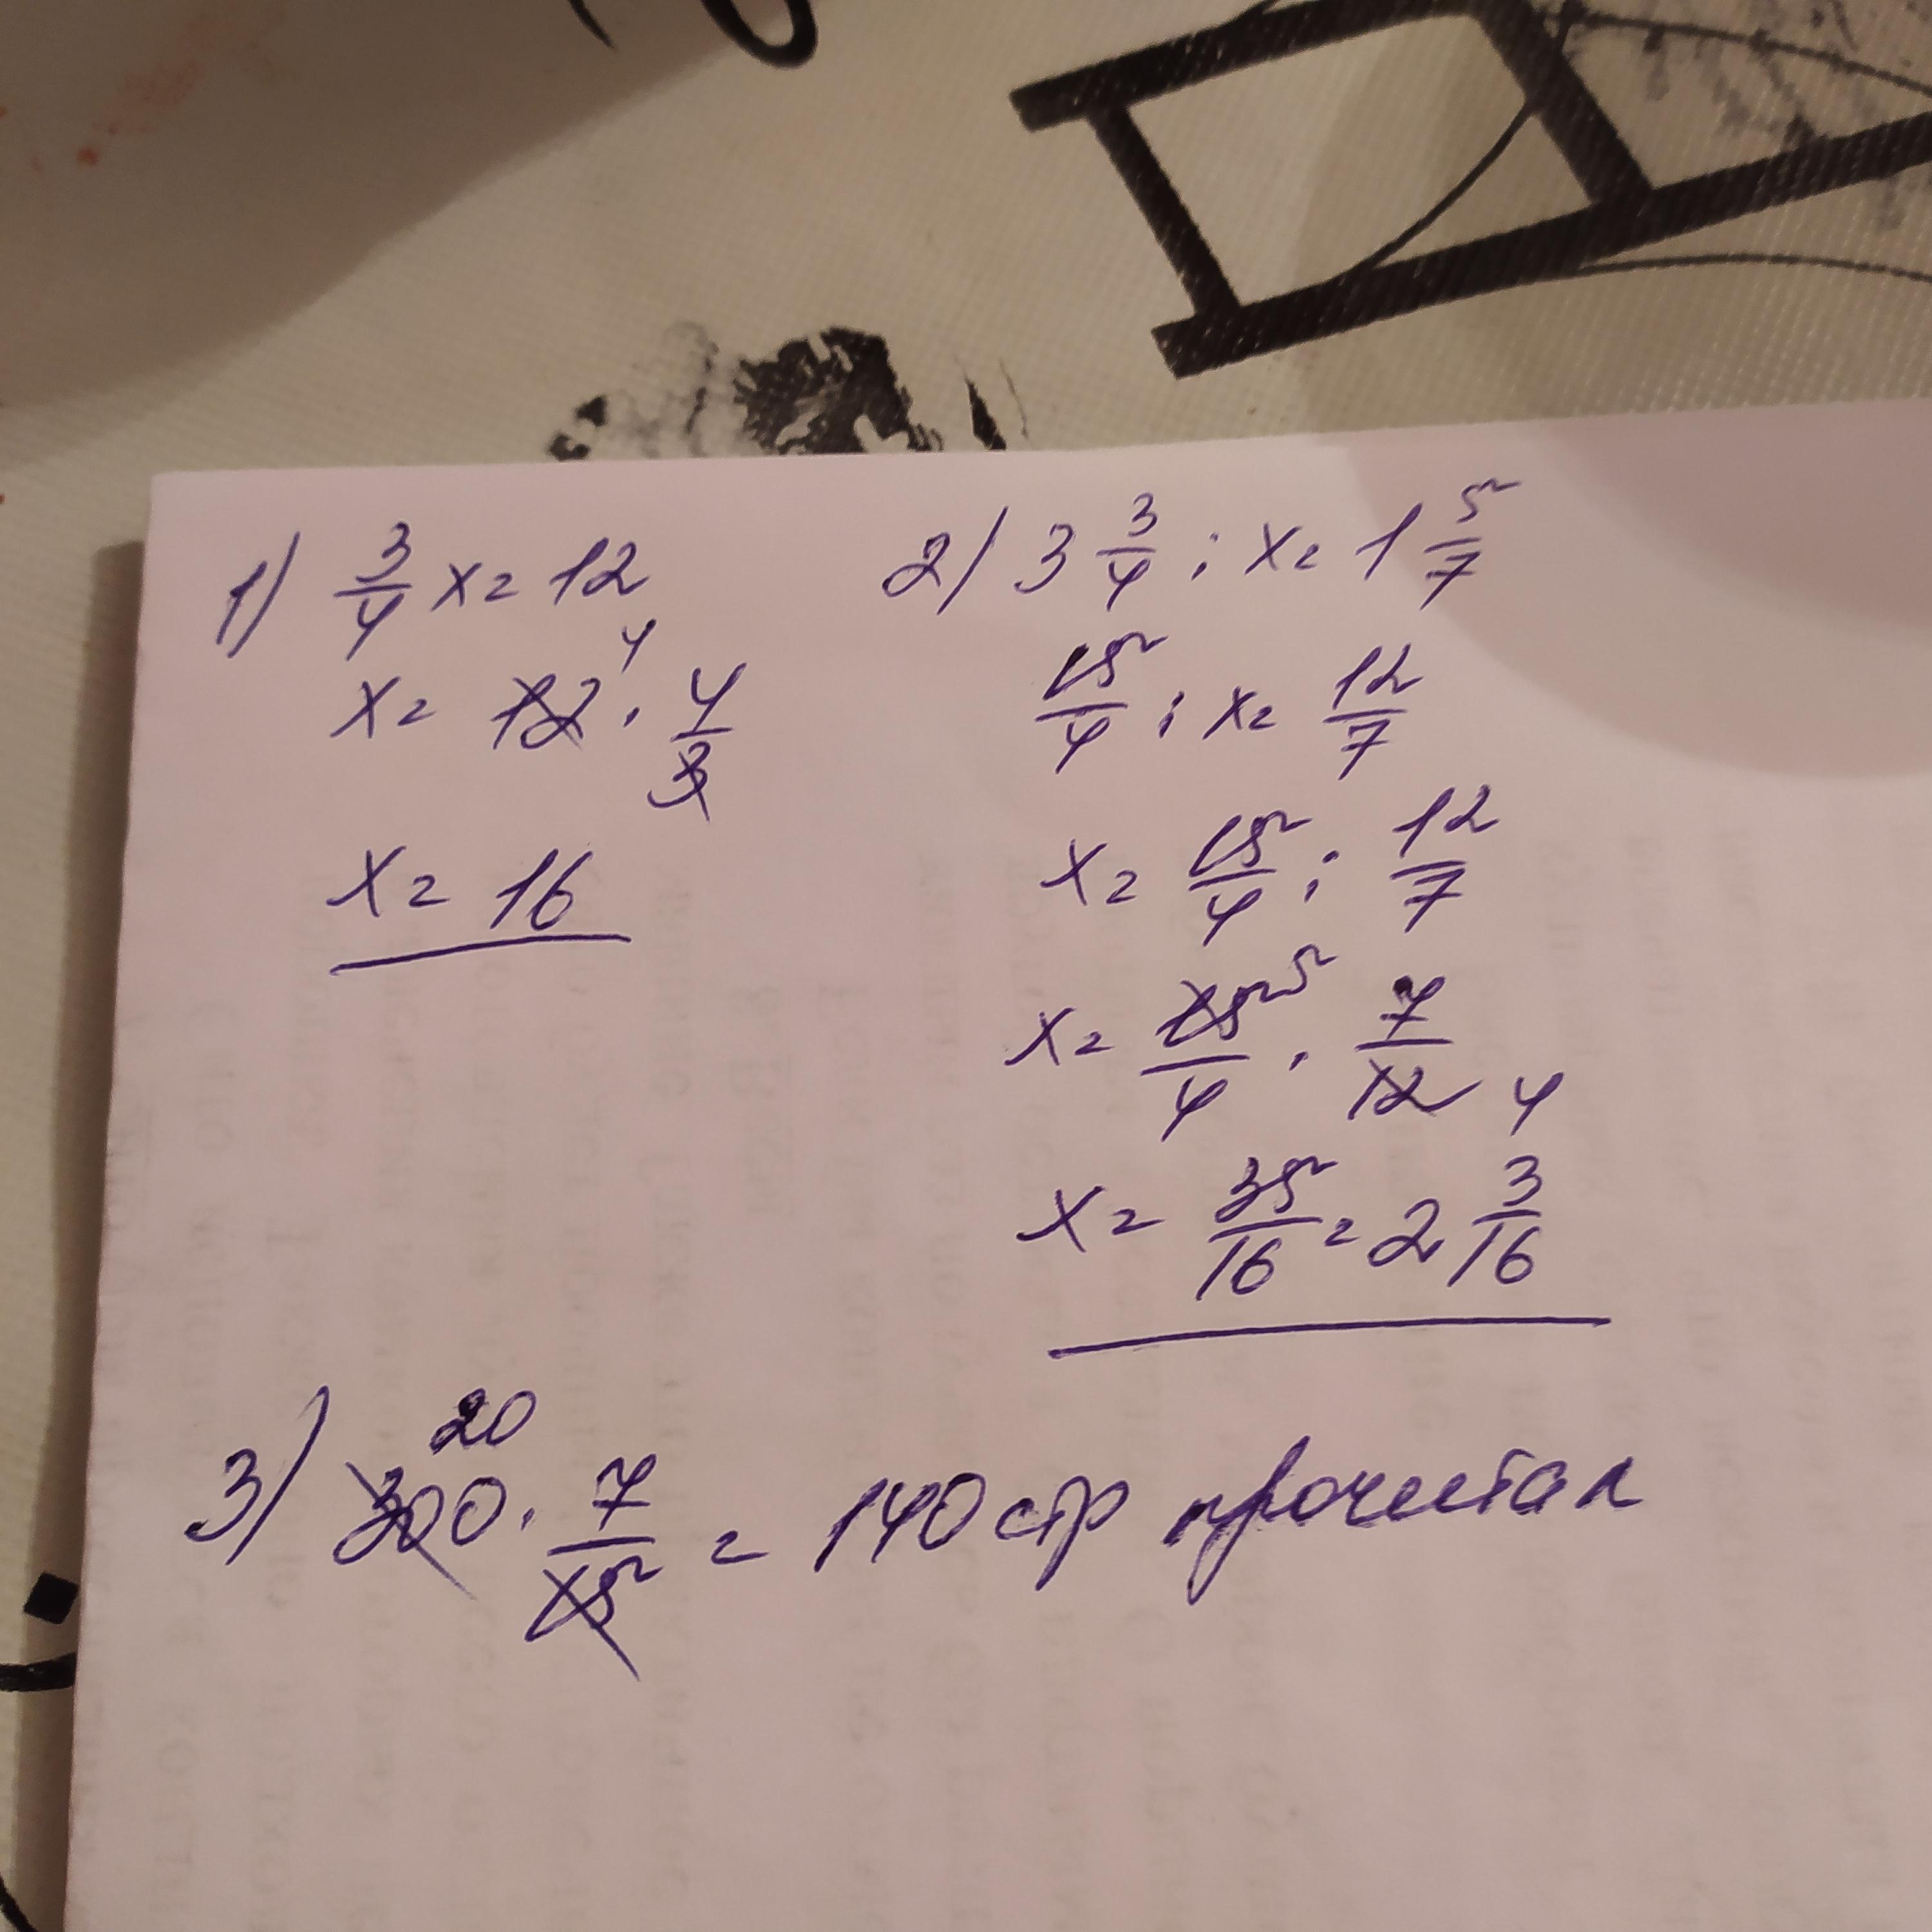 1) 3/4 x = 12
x = 12 4 · 4/3
x = 16
2) 3 3/4 : x = 1 5/7
15/4 : x = 12/7
x = 15/4 : 12/7
x = 15 5/4 · 7/12 4
x = 35/16 = 2 3/16
20
3) 300 · 7/15 = 140 стр прочитал